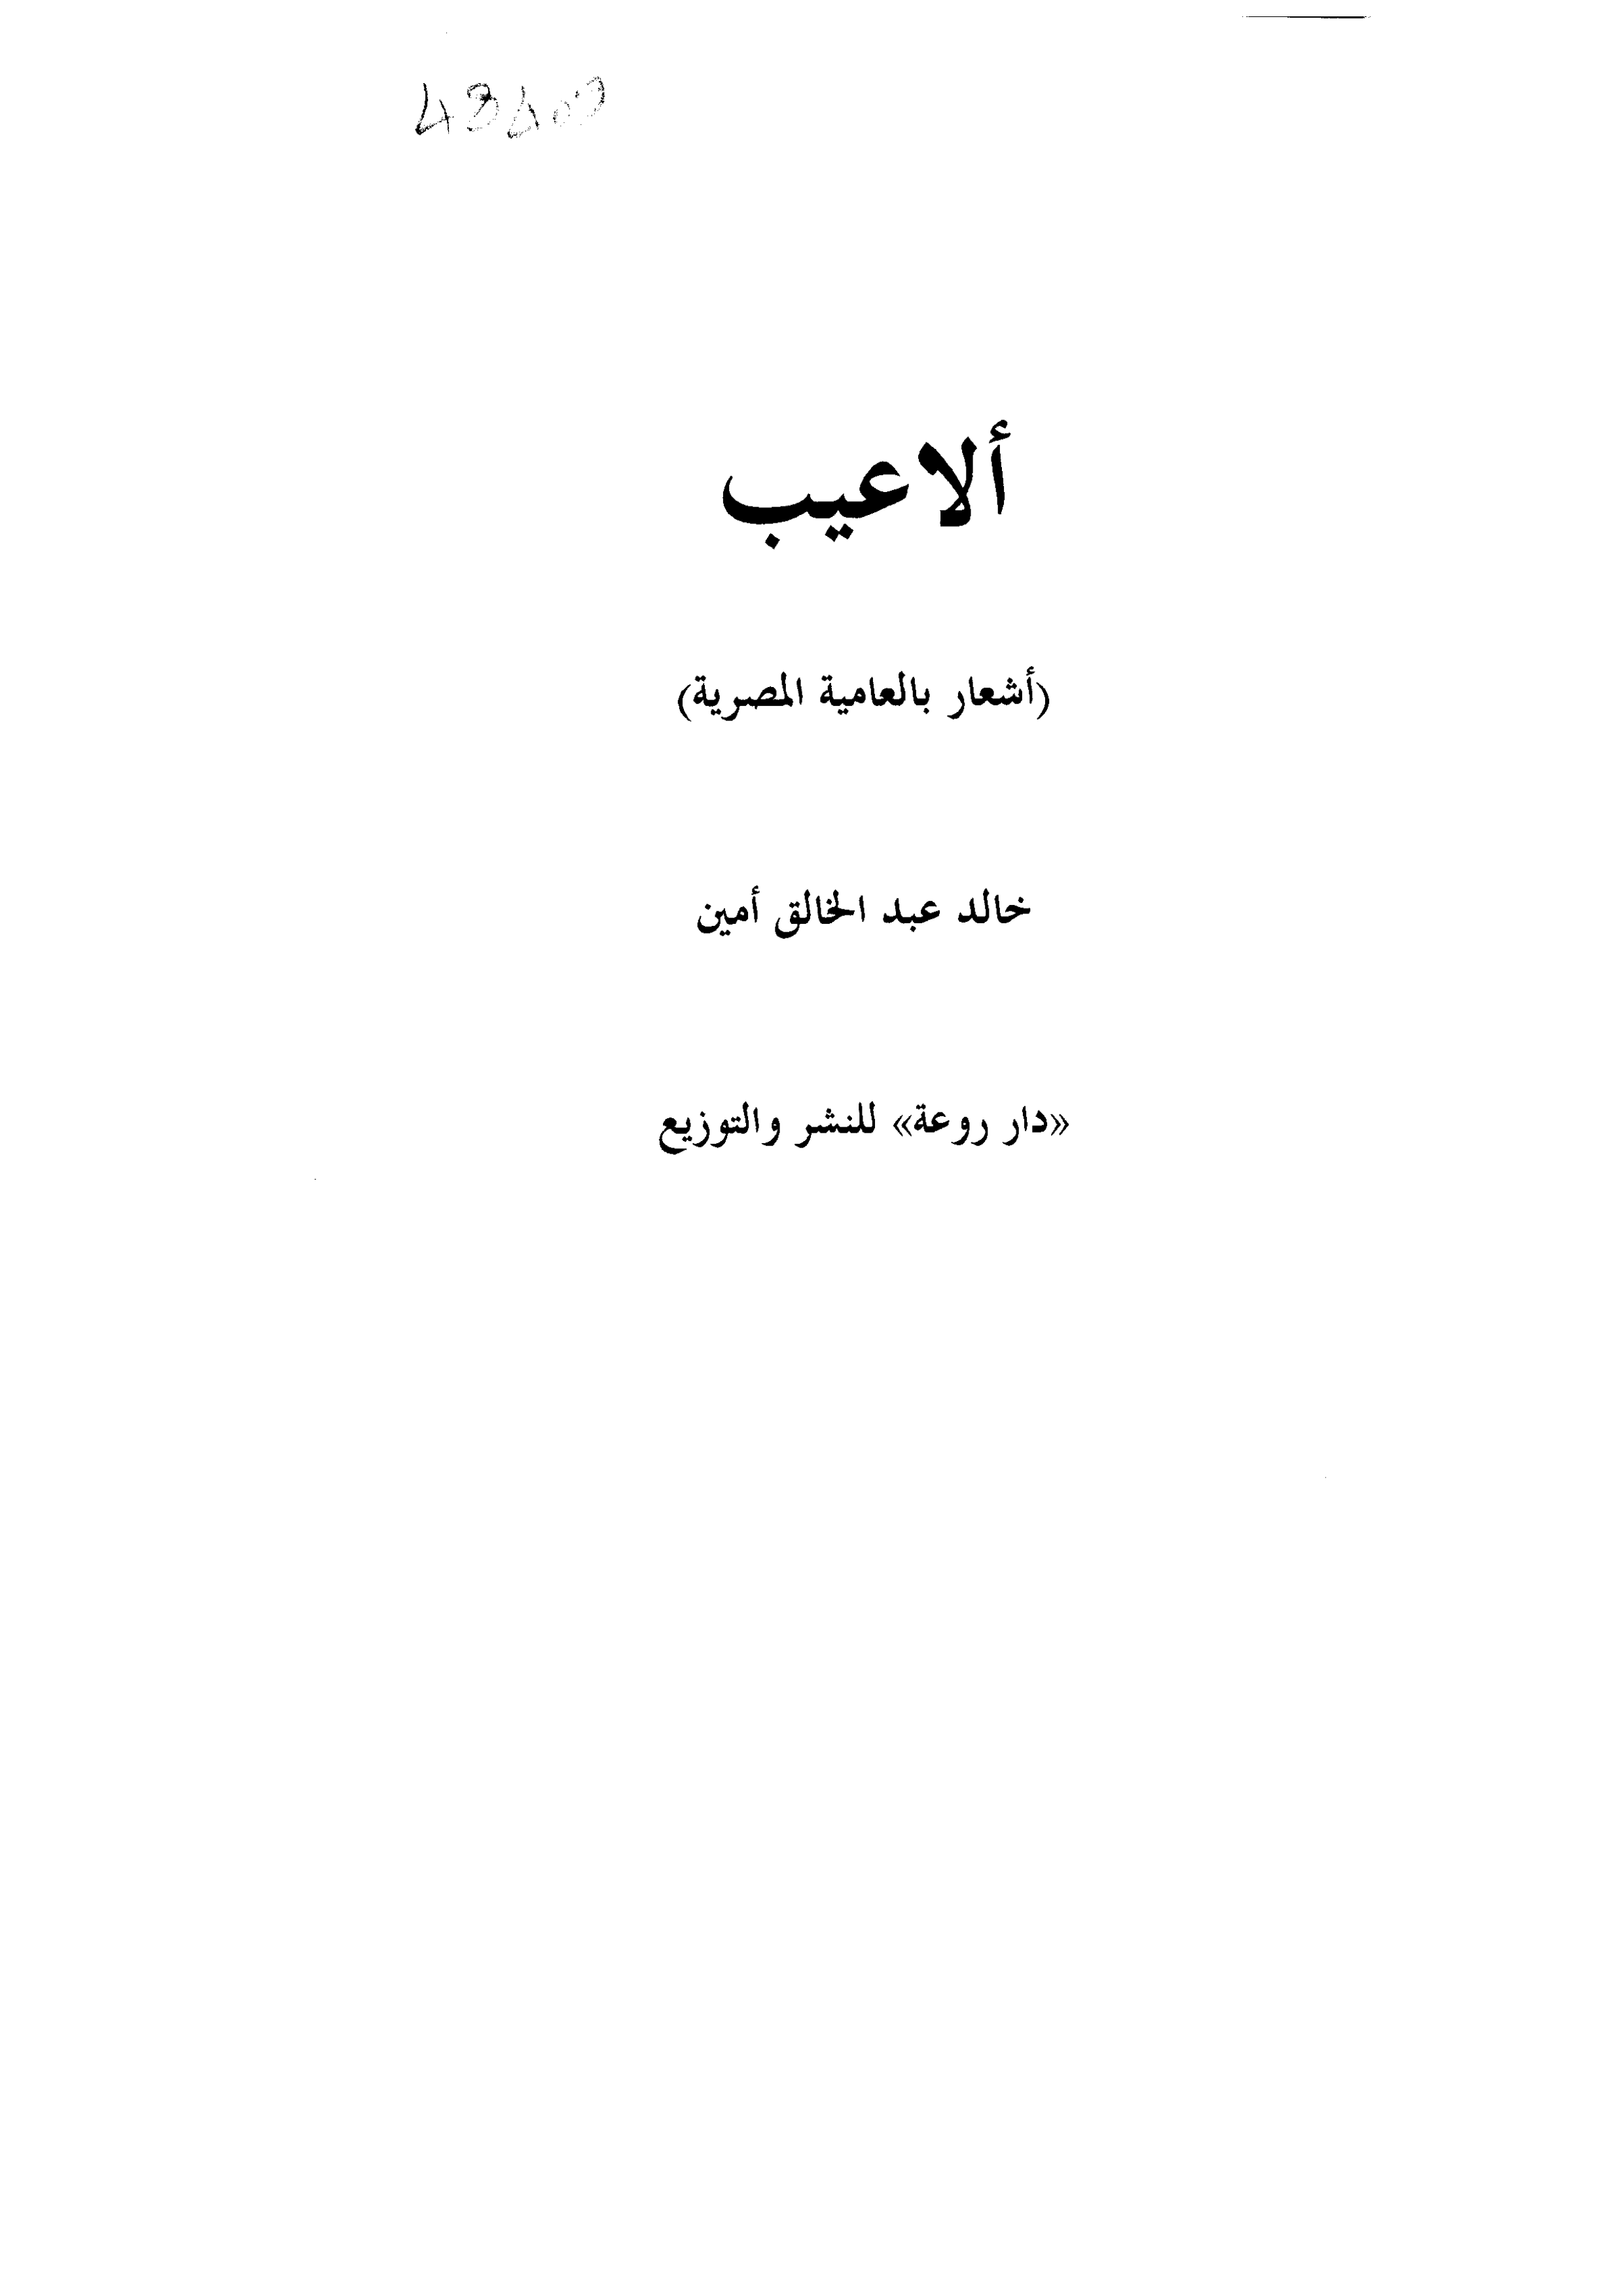 ألاعيب
(أشعار بالعامية المصرية)
خالد عبد الخالق أمين
«دار روعة» للنشر والتوزيع